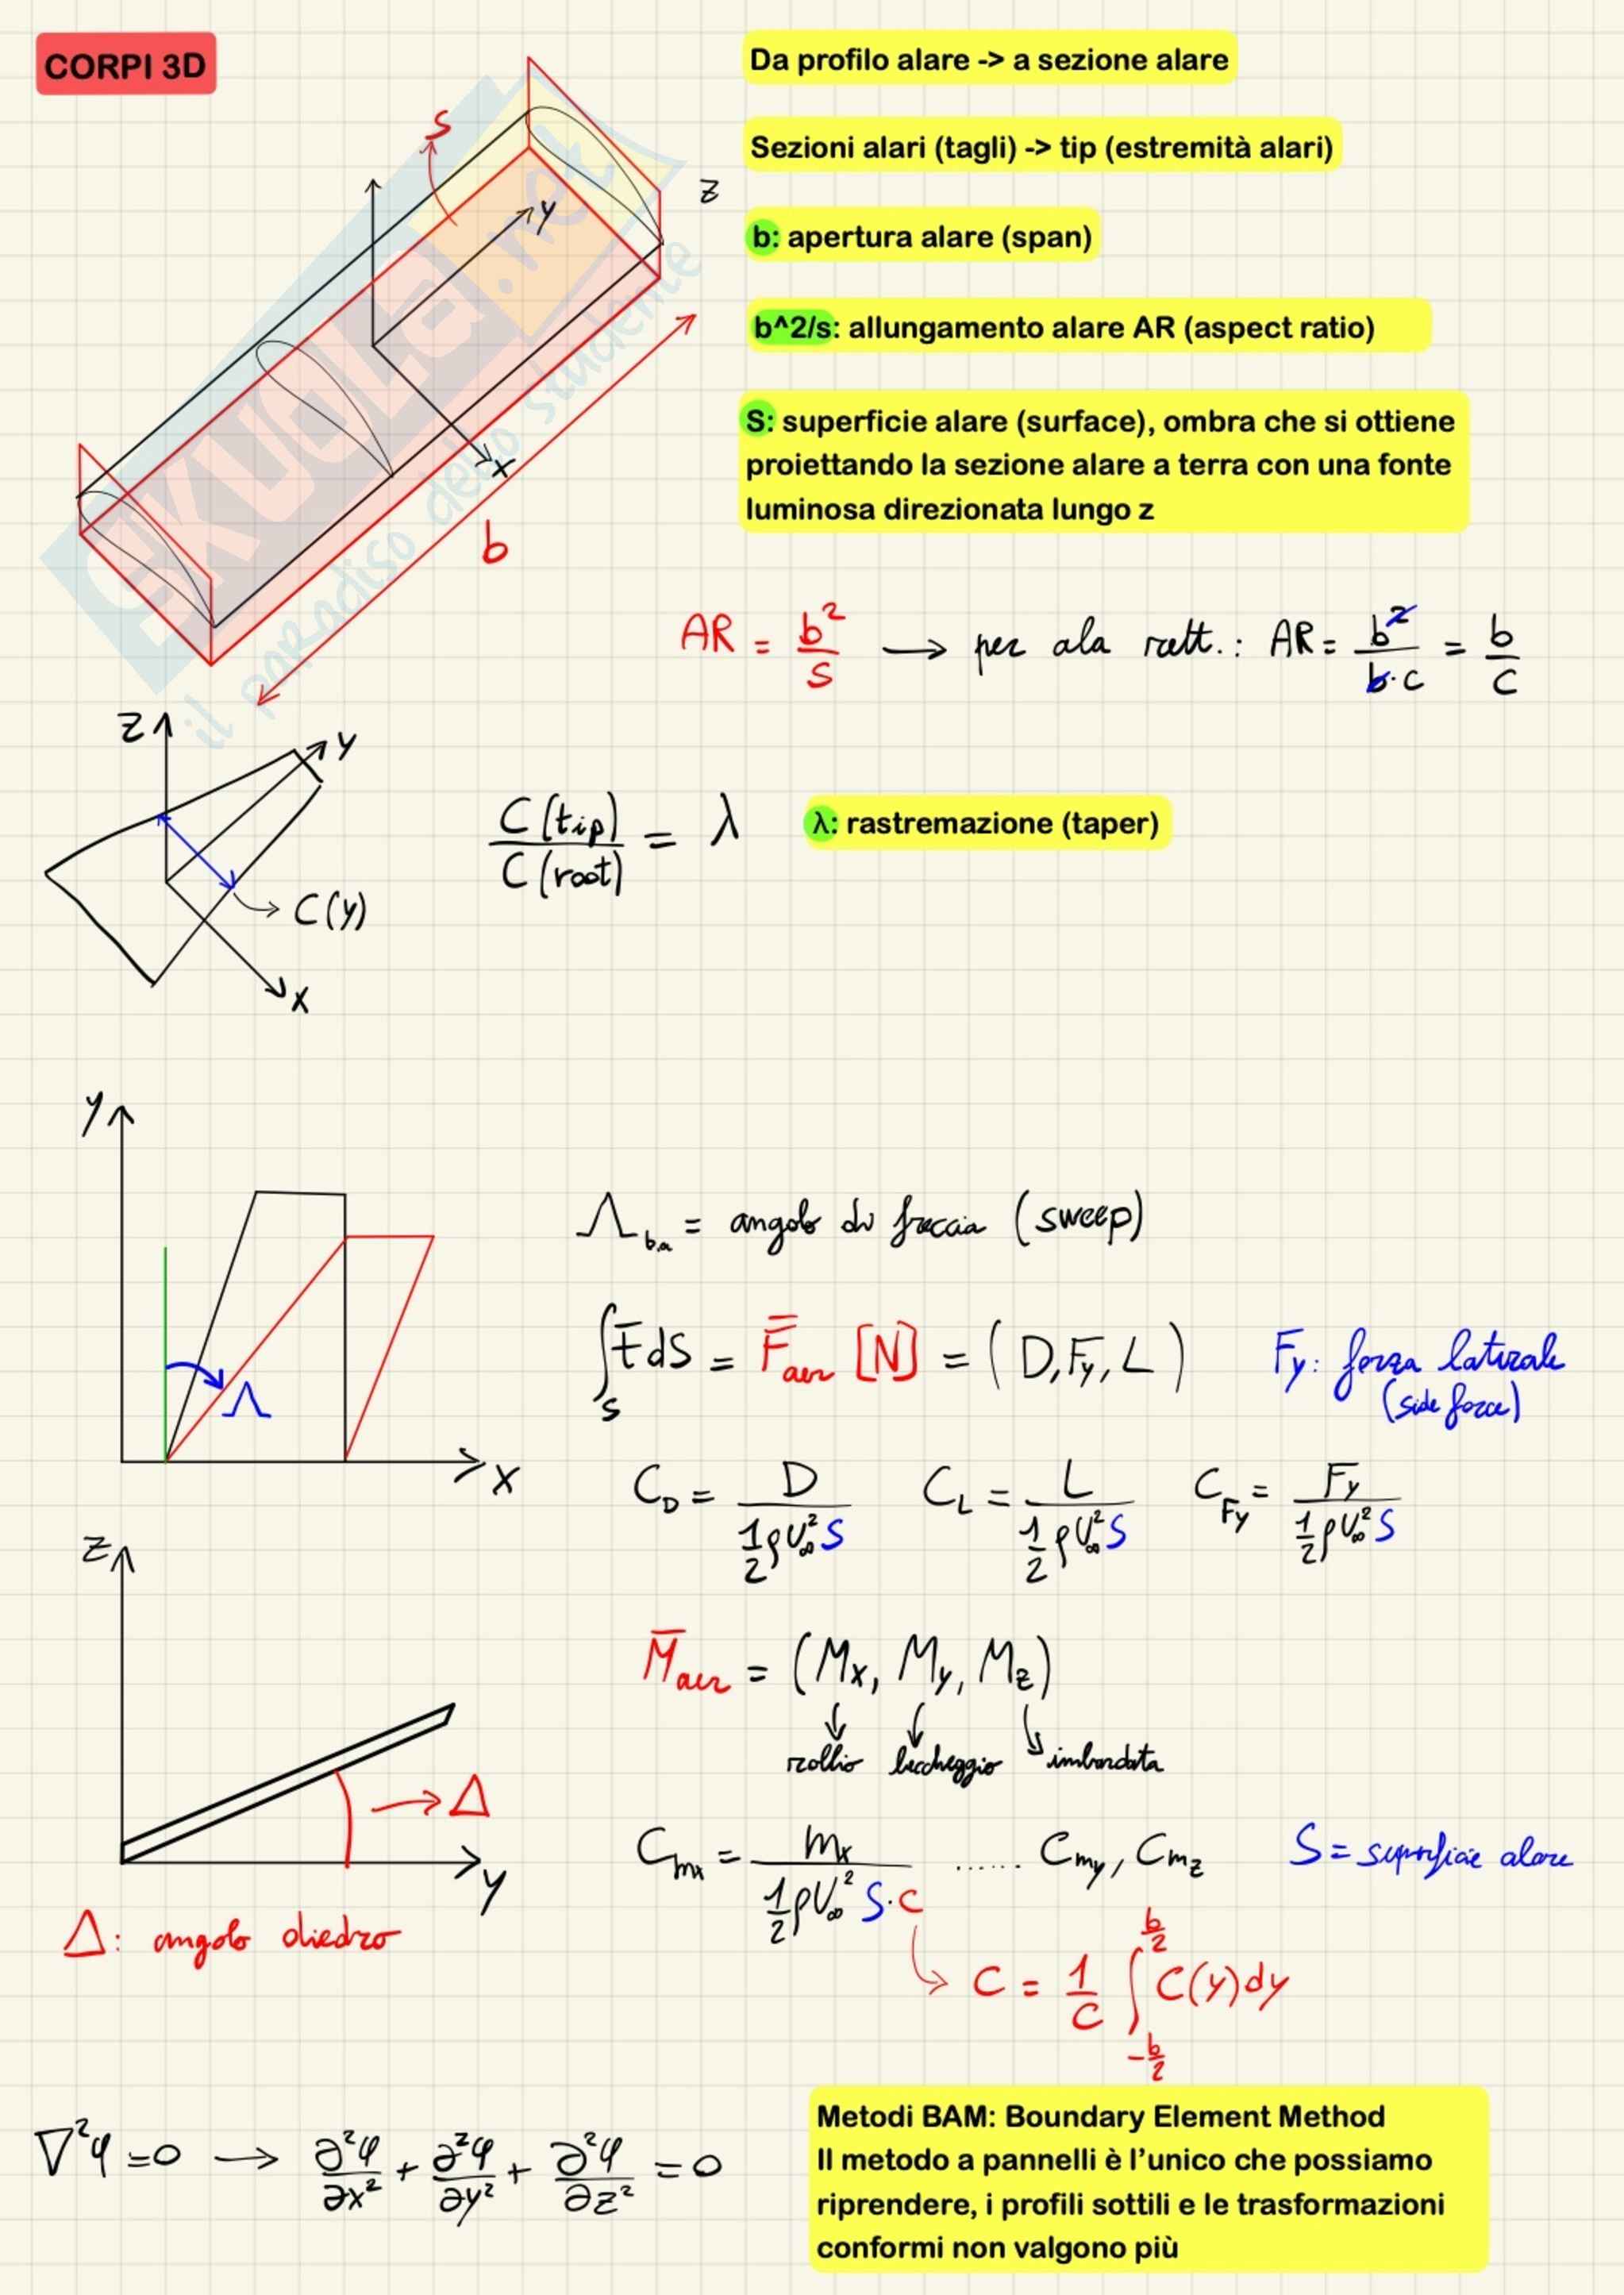 CORPI 3D
Da profilo alare -> a sezione alare
Sezioni alari (tagli) -> tip (estremità alari)
b: apertura alare (span)
b^2/s: allungamento alare AR (aspect ratio)
S: superficie alare (surface), ombra che si ottiene
proiettando la sezione alare a terra con una fonte
luminosa direzionata lungo z
S
z
y
x
b
SKUOLA.net
il paradiso dello studente
AR = b²/S → per ala rett.: AR = b²/b·c = b/c
z
y
C(y)
x
C(tip)/C(root) = λ
λ: rastremazione (taper)
y
Λ
x
Λ b.a = angolo di freccia (sweep)
∫S t̄ dS = F̄aer [N] = (D, Fy, L)
Fy: forza laterale
(side force)
CD = D / ½ρU∞²S   CL = L / ½ρU∞²S   CFy = Fy / ½ρU∞²S
z
M̄aer = (Mx, My, Mz)
rollio beccheggio imbardata
Δ
y
Δ: angolo diedro
Cmx = mx / ½ρU∞²S·c ...... Cmy, Cmz
S = superficie alare
C = 1/C ∫-b/2 b/2 C(y)dy
∇²φ=0 → ∂²φ/∂x² + ∂²φ/∂y² + ∂²φ/∂z² = 0
Metodi BAM: Boundary Element Method
Il metodo a pannelli è l’unico che possiamo
riprendere, i profili sottili e le trasformazioni
conformi non valgono più